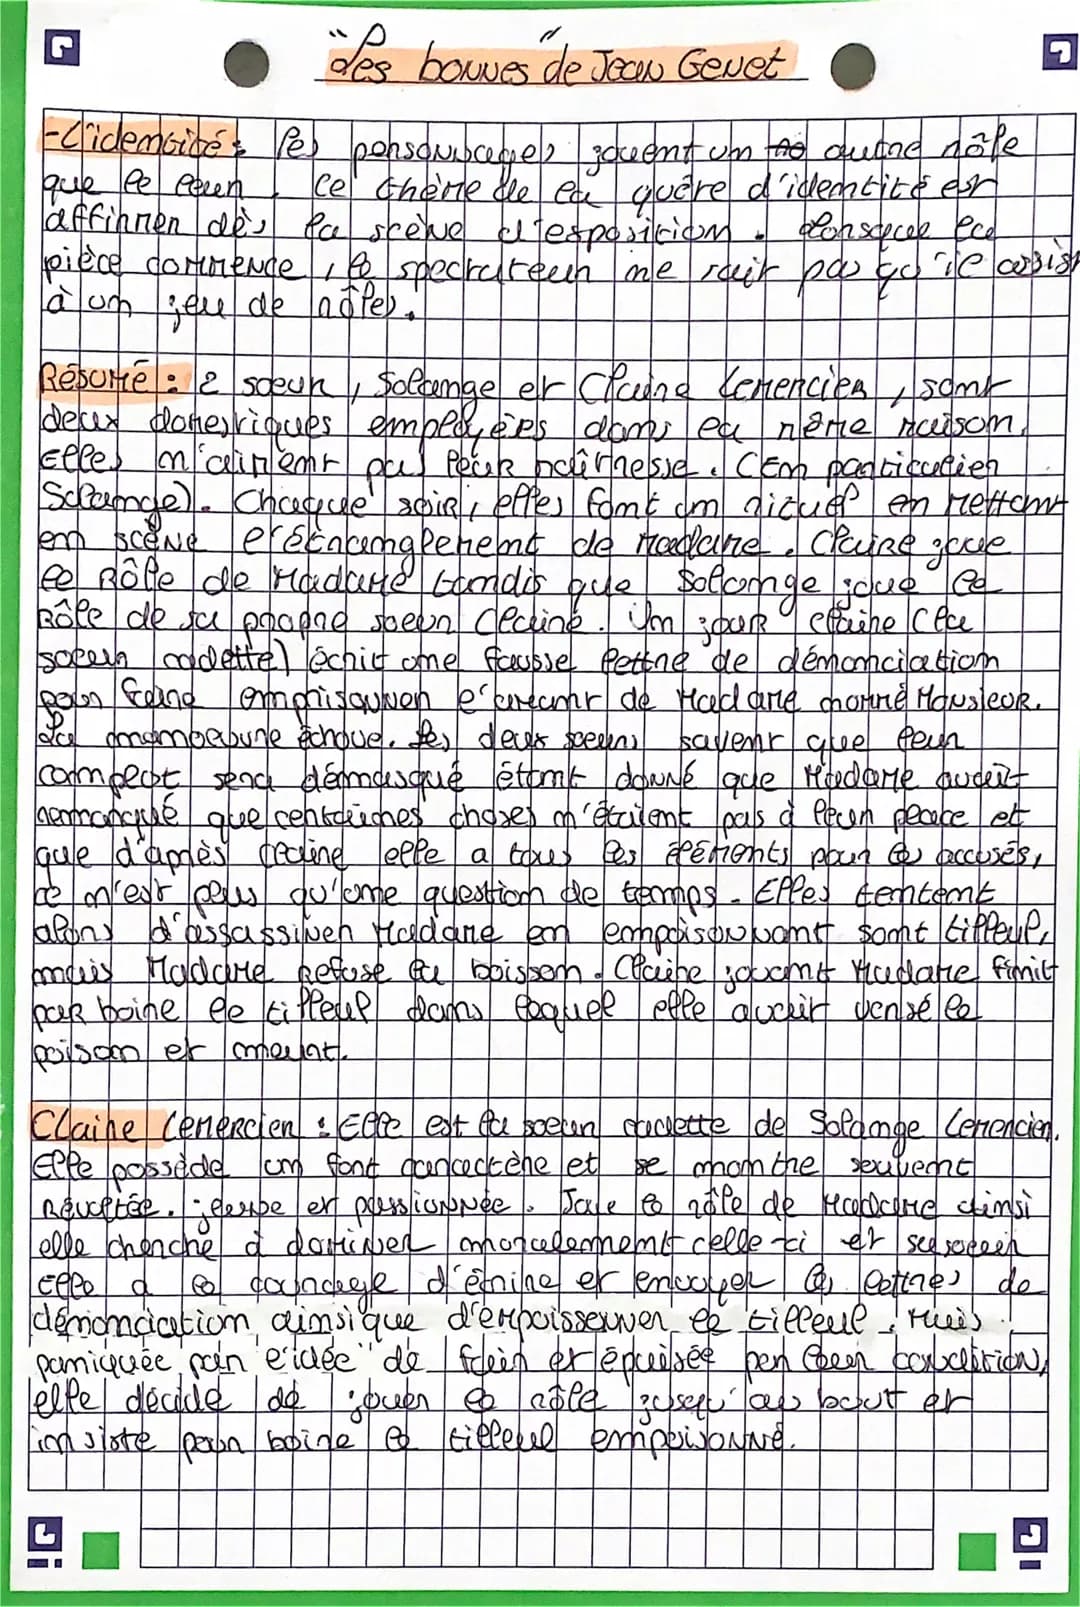 "Les bonnes" de Jean Genet
- L'identité : les personnages jouent un autre rôle
que le leur. Ce thème de la quête d'identité est
affirmer dès la scène d'exposition. Lorsque la
pièce commence, le spectateur ne sait pas qu'il assist
à un jeu de rôles.
Résumé : 2 soeur, Solange et Claire Lemercier, sont
deux domestiques employées dans la même maison.
Elles n'aiment pas leur maîtresse. (En particulier
Solange). Chaque soir, elles font un rituel en mettant
en scène l'étranglement de Madame. Claire joue
le rôle de Madame tandis que Solange joue le
rôle de sa propre soeur Claire. Un jour Claire (la
soeur cadette) écrit une fausse lettre de dénonciation
pour faire emprisonner l'amant de Madame nommé Monsieur.
La manoeuvre échoue. Les deux soeurs savent que leur
complot sera démasqué étant donné que Madame avait
remarqué que certaines choses n'étaient pas à leur place et
que d'après Claire elle a tous les éléments pour les accusés,
ce n'est plus qu'une question de temps. Elles tentent
alors d'assassiner Madame en empoisonnant sont tilleul,
mais Madame refuse la boisson. Claire jouant Madame finit
par boire le tilleul dans lequel elle avait versé le
poison et meurt.
Claire Lemercier : Elle est la soeur cadette de Solange Lemercier.
Elle possède un fort caractère et se montre souvent
révoltée, jeune et passionnée. Joue le rôle de Madame ainsi
elle cherche à dominer moralement celle-ci et sa soeur
Elle a le courage d'écrire et envoyer les lettres de
dénonciation ainsi que d'empoissonner le tilleul. Mais
paniquée par l'idée de fuir et épuisée par leur condition,
elle décide de jouer le rôle jusqu'au bout et
insiste pour boire le tilleul empoisonné.